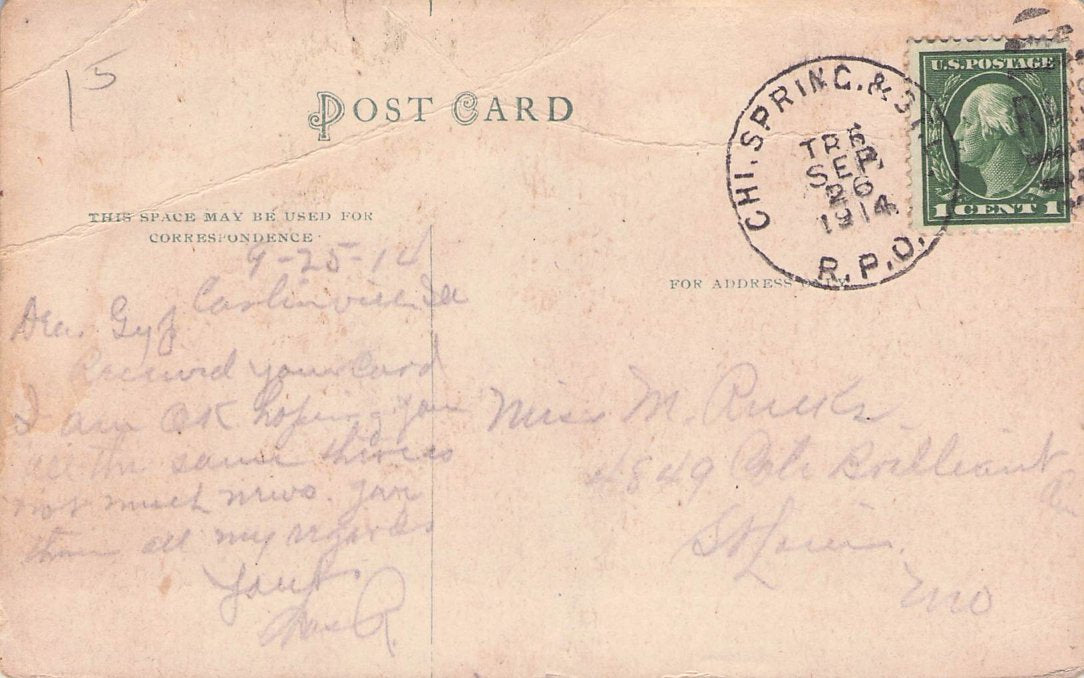 15
POST CARD
THIS SPACE MAY BE USED FOR
CORRESPONDENCE
FOR ADDRESS
CHI. SPRING. & ST.
TR 6
SEP
26
1914
R.P.O.
U.S. POSTAGE
1 CENT 1
9-25-14
Carlinville Ill
Dear
Received your Card
I am OK hoping you
all the same
not much news. give
them all my regards
Miss M. Rucks
4849 Brilliant
St Louis
Mo